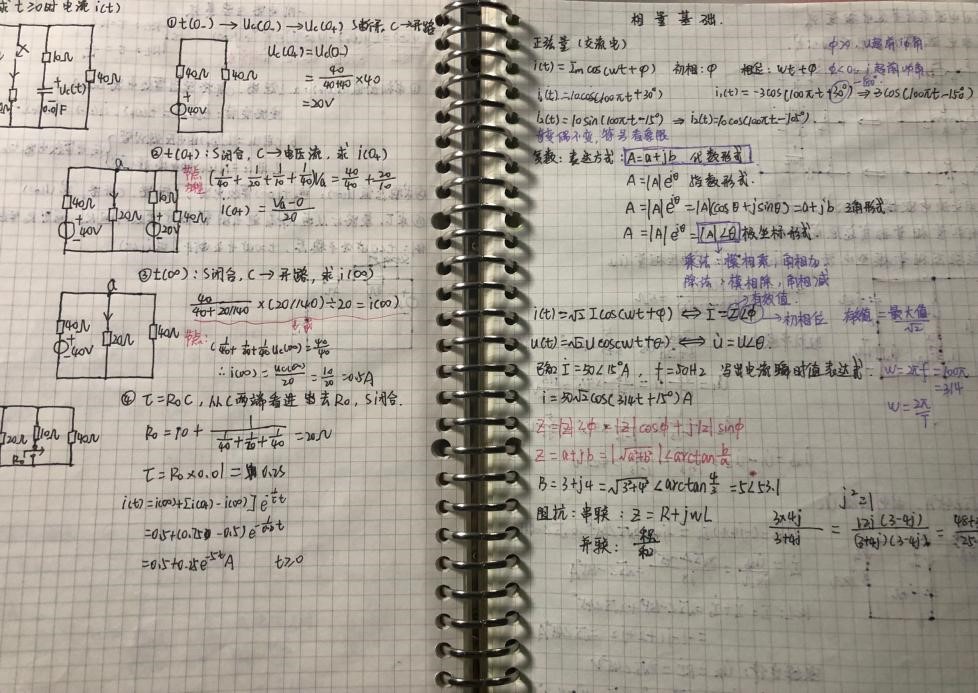 求t≥0时电流i(t)
①t(0-)→Uc(0-)→Uc(0+) S断开, C→开路
Uc(0+)=Uc(0-)
=40/(40+40)×40
=20V
10Ω
40Ω
+Uc(t)
0.01F
40Ω
40Ω
40V
②t(0+): S闭合, C→电压流, 求i(0+)
节点方程
(1/40+1/20+1/10+1/40)Va=40/40+20/10
i(0+)=(Va-0)/20
a
40Ω
20Ω
10Ω
40Ω
40V
20V
③t(∞): S闭合, C→开路, 求i(∞)
40/(40+20//40)×(20//40)÷20=i(∞)
节点:
(1/40+1/20+1/40)Uc(∞)=40/40
∴i(∞)=Uc(∞)/20=10/20=0.5A
a
40Ω
20Ω
40Ω
40V
④τ=R0C, 从C两端看进去R0, S闭合.
R0=10+1/(1/40+1/20+1/40)=20Ω
τ=R0×0.01=0.2S
i(t)=i(∞)+[i(0+)-i(∞)]e^(-t/τ)
=0.5+(0.75-0.5)e^(-t/0.2)
=0.5+0.25e^(-5t)A t≥0
20Ω
10Ω
40Ω
R0
相量基础.
正弦量(交流电)
i(t)=Im cos(wt+φ) 初相:φ 相位:wt+φ
i1(t)=10cos(100πt+30°) i1(t)=-3cos(100πt+30°)⇒3cos(100πt-150°)
i2(t)=10sin(100πt-15°)⇒i2(t)=10cos(100πt-105°).
奇变偶不变, 符号看象限
复数: 表达方式: A=a+jb 代数形式
A=|A|e^(jθ) 指数形式.
A=|A|e^(jθ)=|A|(cosθ+jsinθ)=a+jb 三角形式.
A=|A|e^(jθ)=|A|∠θ 极坐标形式.
乘法: 模相乘, 角相加
除法: 模相除, 角相减
→有效值.
i(t)=√2 I cos(wt+φ)⇔İ=I∠φ →初相位 有效值=最大值/√2
u(t)=√2 U cos(wt+θ).⇔u̇=U∠θ.
已知İ=50∠15°A, f=50Hz 写出电流瞬时值表达式. w=2πf=100π
=314
i=50√2cos(314t+15°)A
w=2π/T
Z=|Z|∠φ=|Z|cosφ+j|Z|sinφ
Z=a+jb=|√a²+b²|∠arctan b/a
B=3+j4=√3²+4² ∠arctan 4/3=5∠53.1
阻抗: 串联: Z=R+jwL
并联: 积/和
j²=1
3×4j/(3+4j)=12j(3-4j)/((3+4j)(3-4j))=48+/25